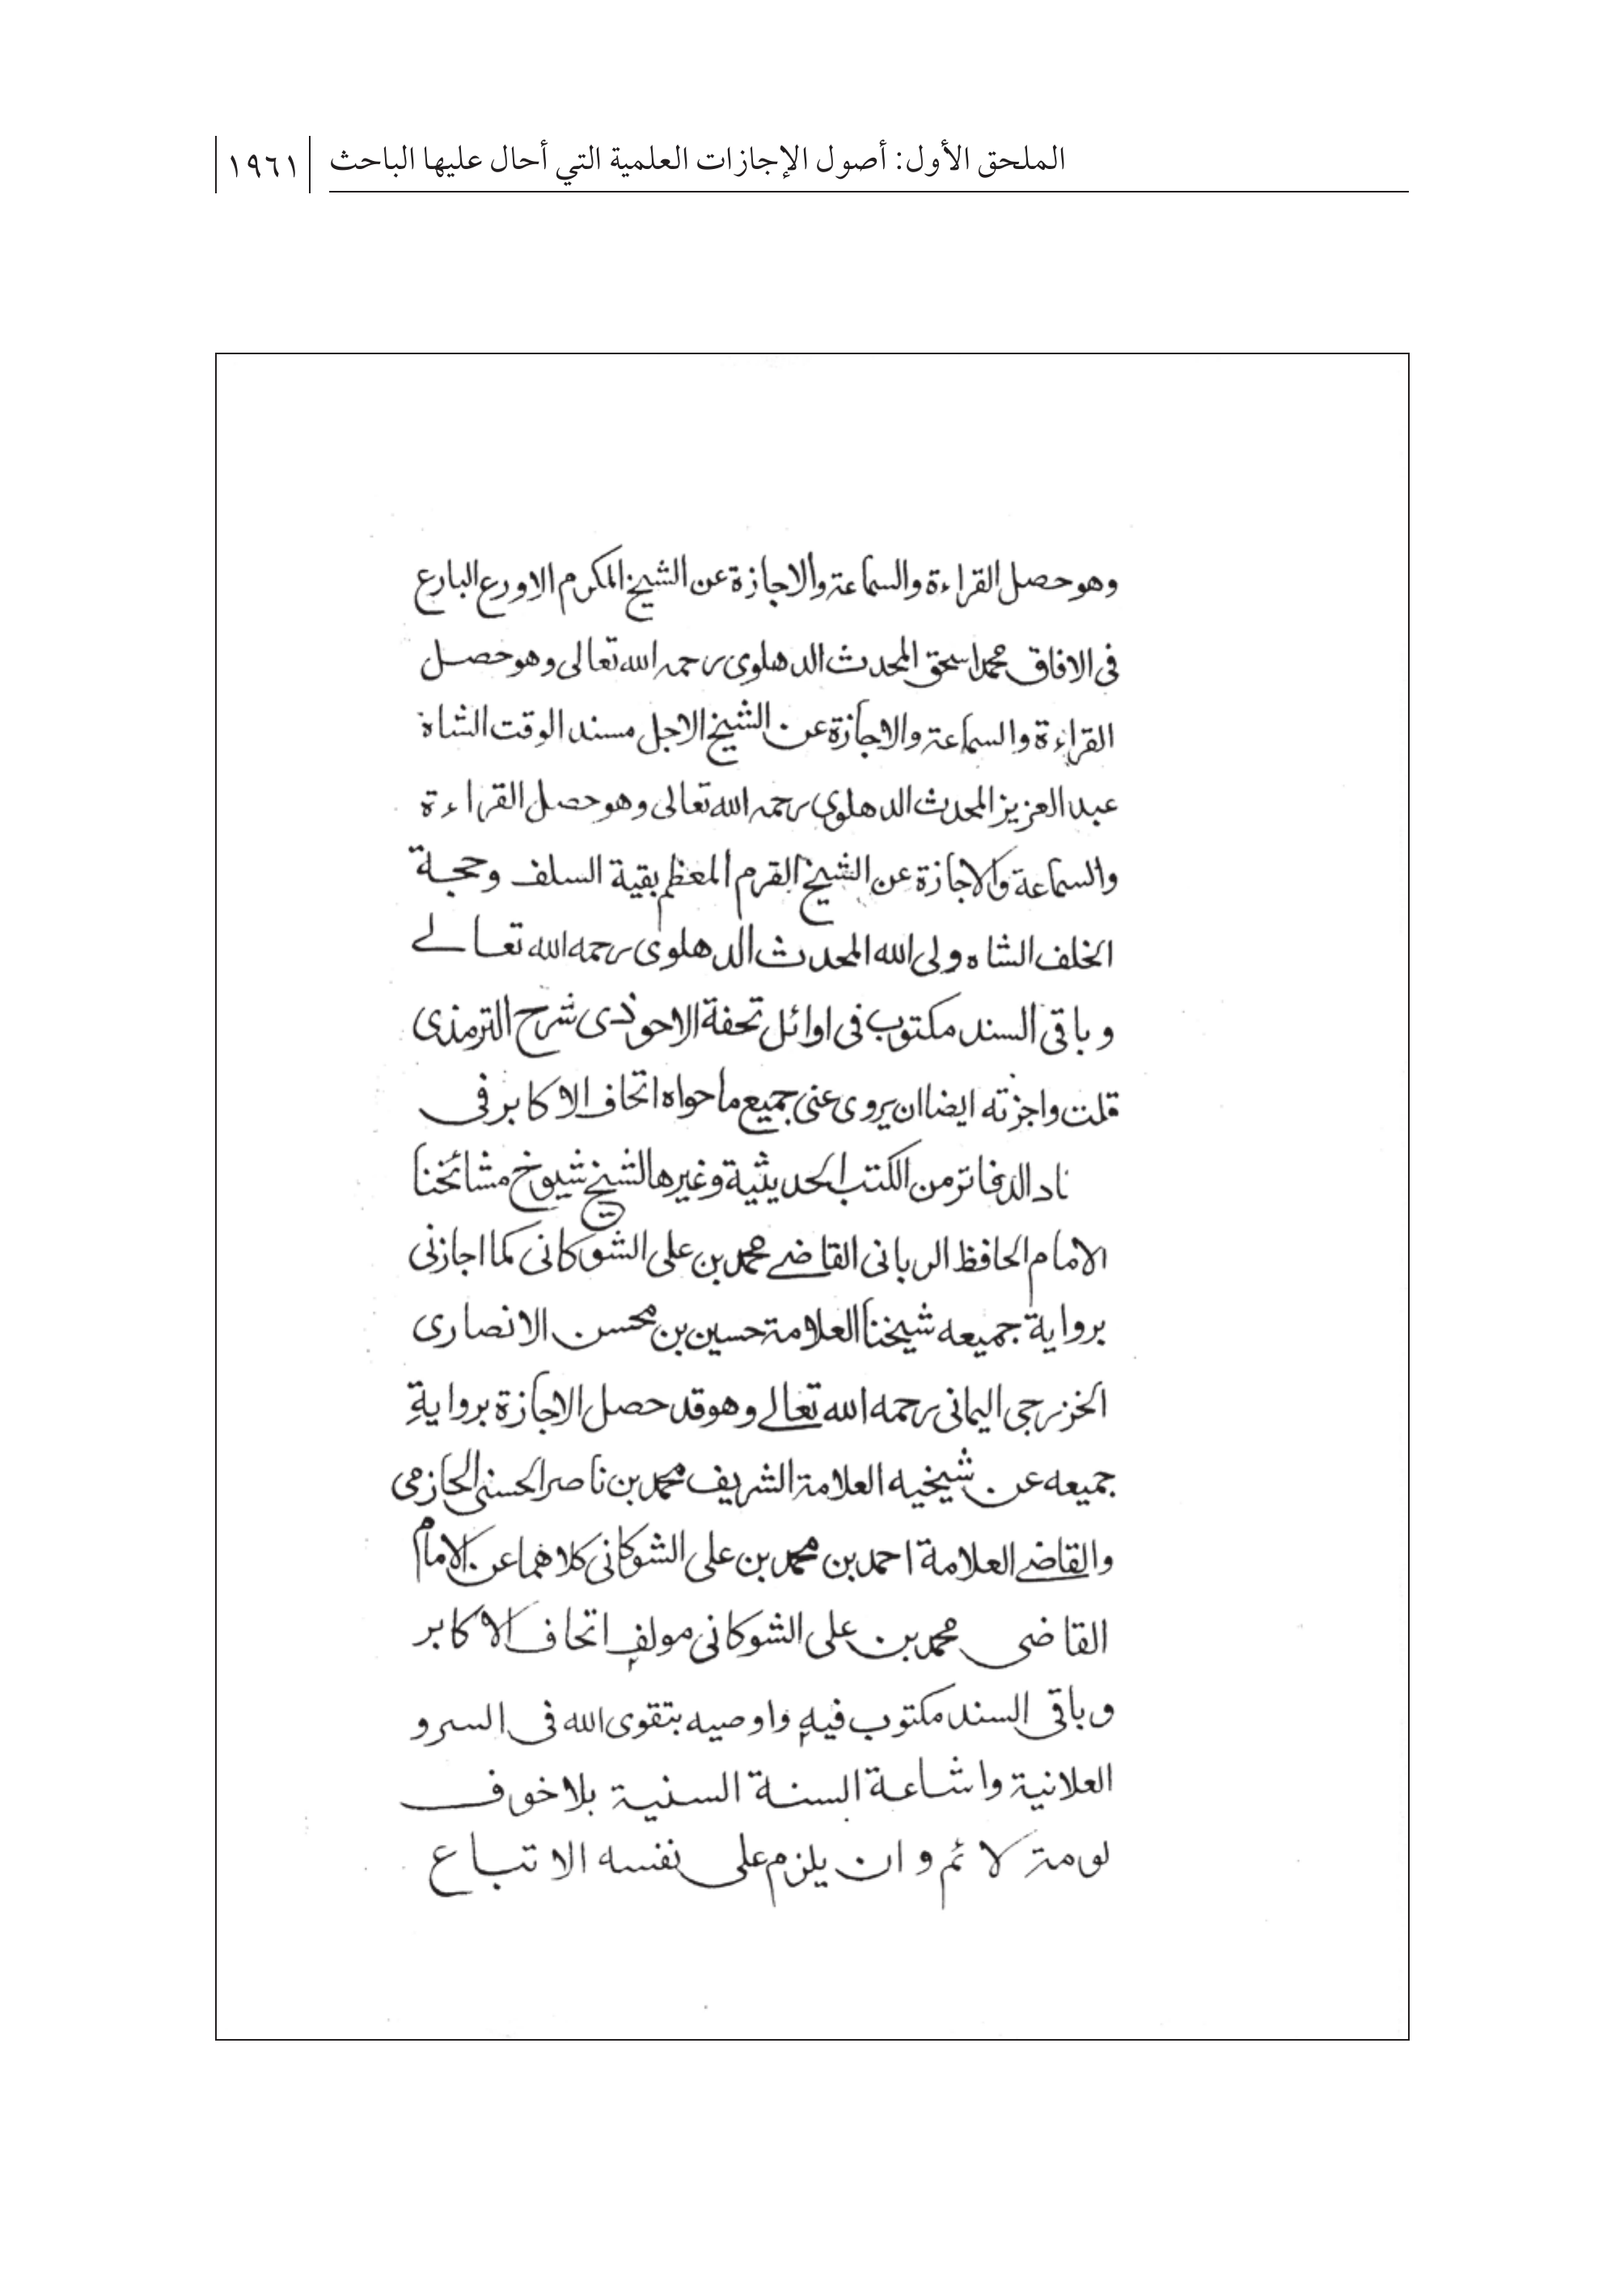 الملحق الأول: أصول الإجازات العلمية التي أحال عليها الباحث ١٩٦١
وهو حصل القراءة والسماعة والاجازة عن الشيخ المكرم الاورع البارع
فى الافاق محمد اسحق المحدث الدهلوى رحمه الله تعالى وهو حصل
القراءة والسماعة والاجازة عن الشيخ الاجل مسند الوقت الشاه
عبد العزيز المحدث الدهلوى رحمه الله تعالى وهو حصل القراءة
والسماعة والاجازة عن الشيخ القرم المعظم بقية السلف وحجة
الخلف الشاه ولى الله المحدث الدهلوى رحمه الله تعالے
وباقى السند مكتوب فى اوائل تحفة الاحوذى شرح الترمذى
قلت واجزته ايضا ان يروى عنى جميع ما حواه اتحاف الاكابر فى
ناد الدفاتر من الكتب الحديثية وغيرها لشيخ شيوخ مشائخنا
الامام الحافظ الربانى القاضے محمد بن على الشوكانى كما اجازنى
برواية جميعه شيخنا العلامة حسين بن محسن الانصارى
الخزرجى اليمانى رحمه الله تعالے وهو قد حصل الاجازة برواية
جميعه عن شيخيه العلامة الشريف محمد بن ناصر الحسنى الحازمى
والقاضے العلامة احمد بن محمد بن على الشوكانى كلاهما عن الامام
القاضى محمد بن على الشوكانى مولف اتحاف الاكابر
وباقى السند مكتوب فيه واوصيه بتقوى الله فى السر و
العلانية واشاعة السنة السنية بلا خوف
لومة لائم وان يلزم على نفسه الاتباع